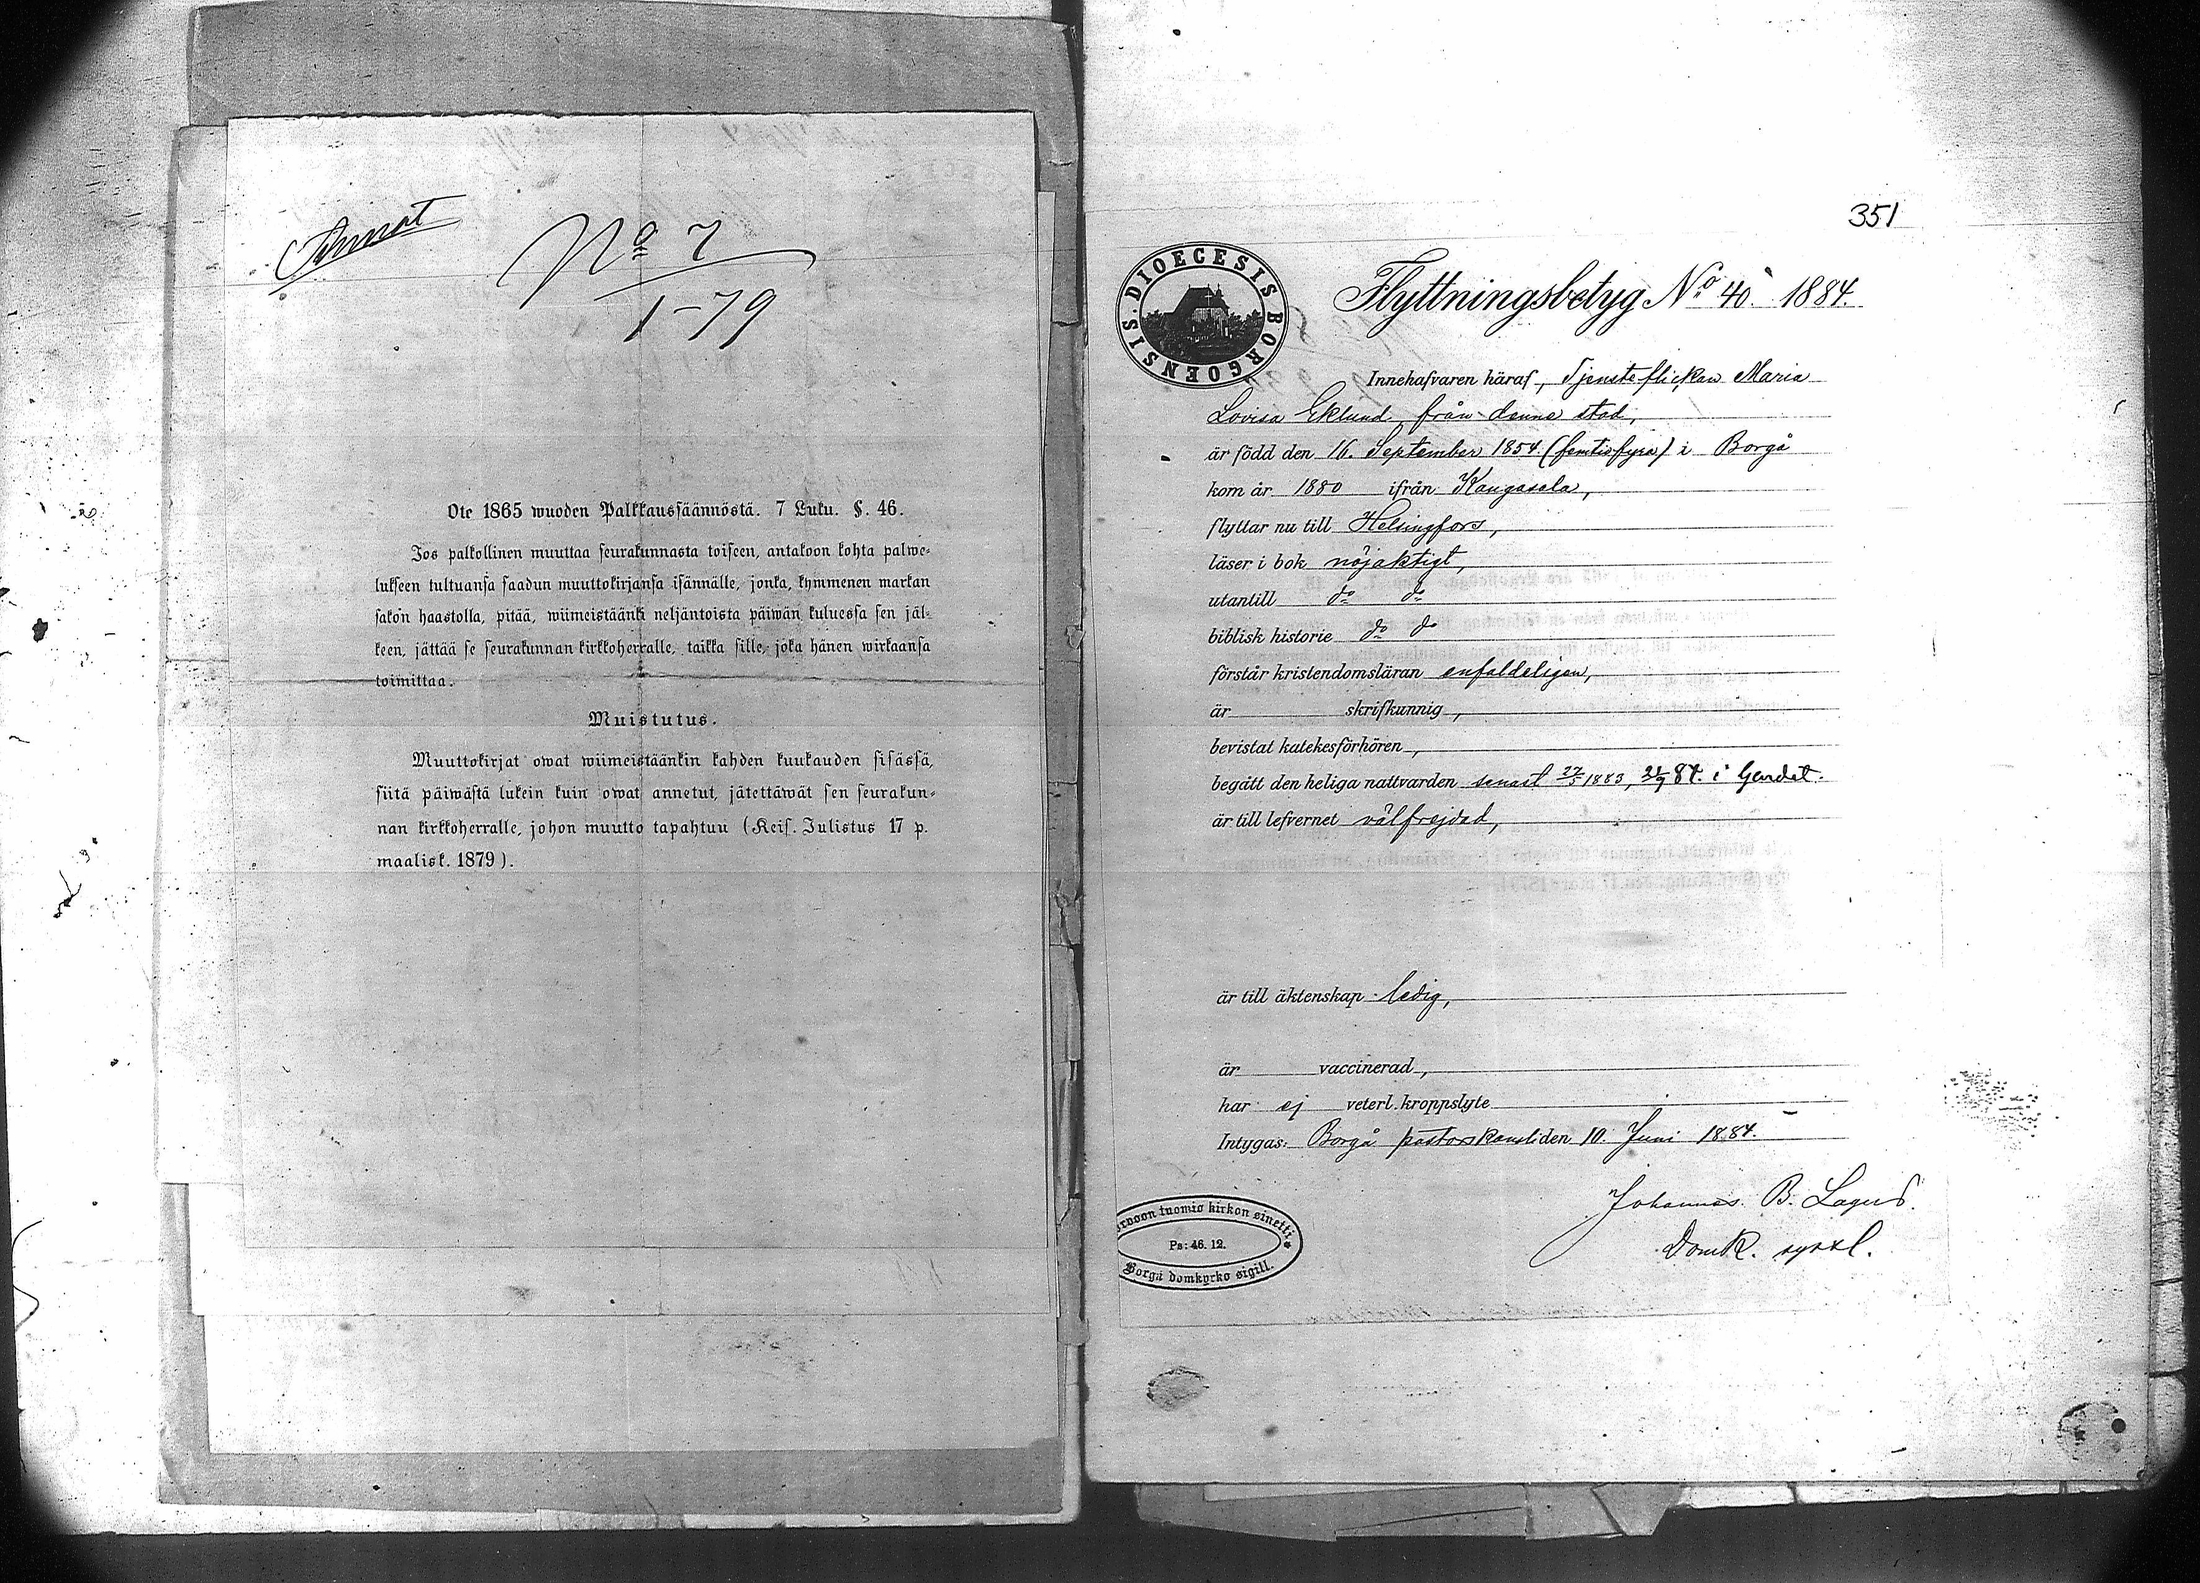 Nº 7
1-79
Ote 1865 wuoden Palkkaussäännöstä. 7 Luku. §. 46.
Jos palkollinen muuttaa seurakunnasta toiseen, antakoon kohta palwe-
lukseen tultuansa saadun muuttokirjansa isännälle, jonka, kymmenen markan
sakon haastolla, pitää, wiimeistäänki neljäntoista päiwän kuluessa sen jäl-
keen, jättää se seurakunnan kirkkoherralle, taikka sille, joka hänen wirkaansa
toimittaa.
Muistutus.
Muuttokirjat owat wiimeistäänkin kahden kuukauden sisässä,
siitä päiwästä lukein kuin owat annetut, jätettäwät sen seurakun-
nan kirkkoherralle, johon muutto tapahtuu (Keis. Julistus 17 p.
maalisk. 1879).
351
DIOECESIS BORGOENSIS.
Flyttningsbetyg Nº 40. 1884.
Innehafvaren häraf, Tjensteflickan Maria
Lovisa Eklund, från denna stad,
är född den 16. September 1854 (femtiofyra) i Borgå
kom år 1880 ifrån Kangasala,
flyttar nu till Helsingfors,
läser i bok nöjaktigt,
utantill do do
biblisk historie do do
förstår kristendomsläran enfaldeligen,
är skrifkunnig,
bevistat katekesförhören,
begått den heliga nattvarden senast 27/5 1883, 21/9 84. i
är till lefvernet välfrejdad,
är till äktenskap ledig,
är vaccinerad,
har ej veterl. kroppslyte
Intygas: Borgå pastorskansli den 10. Juni 1884.
Johannes B. Lagus.
Domk. syssl.
Porvoon tuomio kirkon sinetti
Ps: 46. 12.
Borgå domkyrko sigill.